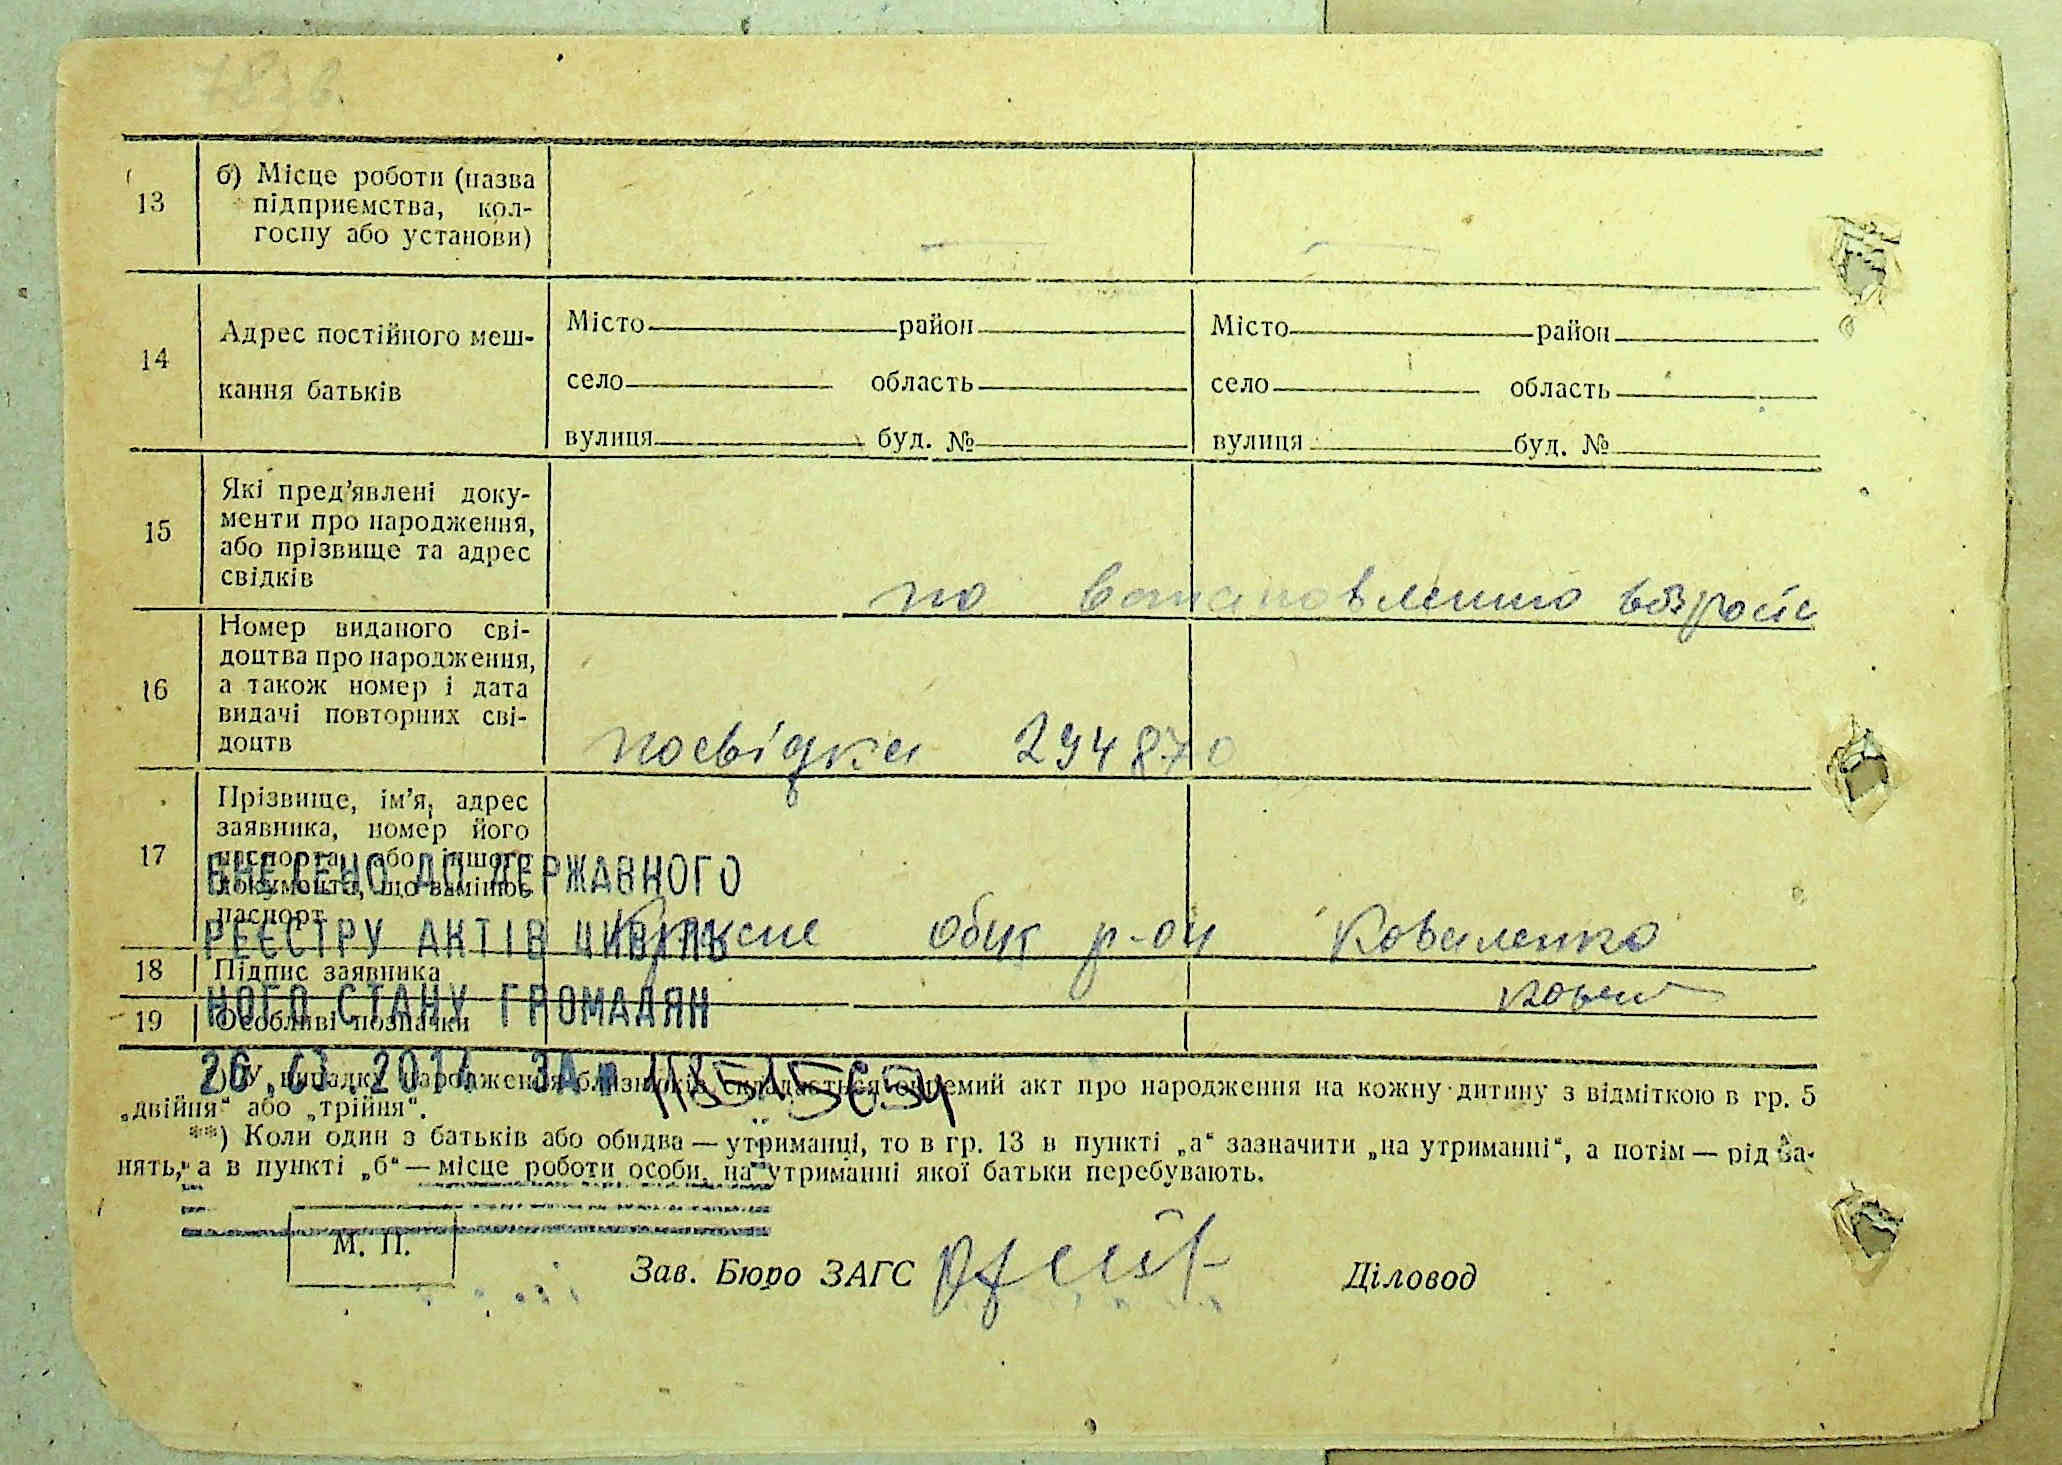 13
б) Місце роботи (назва
підприємства, кол-
госпу або установи)
14
Адрес постійного меш-
кання батьків
Місто район
село область
вулиця буд. №
Місто район
село область
вулиця буд. №
15
Які пред’явлені доку-
менти про народження,
або прізвище та адрес
свідків
по
16
Номер виданого сві-
доцтва про народження,
а також номер і дата
видачі повторних сві-
доцтв
посвідка 294870
17
Прізвище, ім’я, адрес
заявника, номер його
паспорта або іншого
документа, що замінює
паспорт
р-он Коваленко
18
Підпис заявника
19
Особливі позначки
ВНЕСЕНО ДО ДЕРЖАВНОГО
РЕЄСТРУ АКТІВ ЦИВІЛЬ
НОГО СТАНУ ГРОМАДЯН
ЗА №
*) У випадку народження близнюків складається окремий акт про народження на кожну дитину з відміткою в гр. 5
„двійня“ або „трійня“.
**) Коли один з батьків або обидва — утриманці, то в гр. 13 в пункті „а“ зазначити „на утриманні“, а потім — рід за-
нять, а в пункті „б“ — місце роботи особи, на утриманні якої батьки перебувають.
М. П.
Зав. Бюро ЗАГС
Діловод